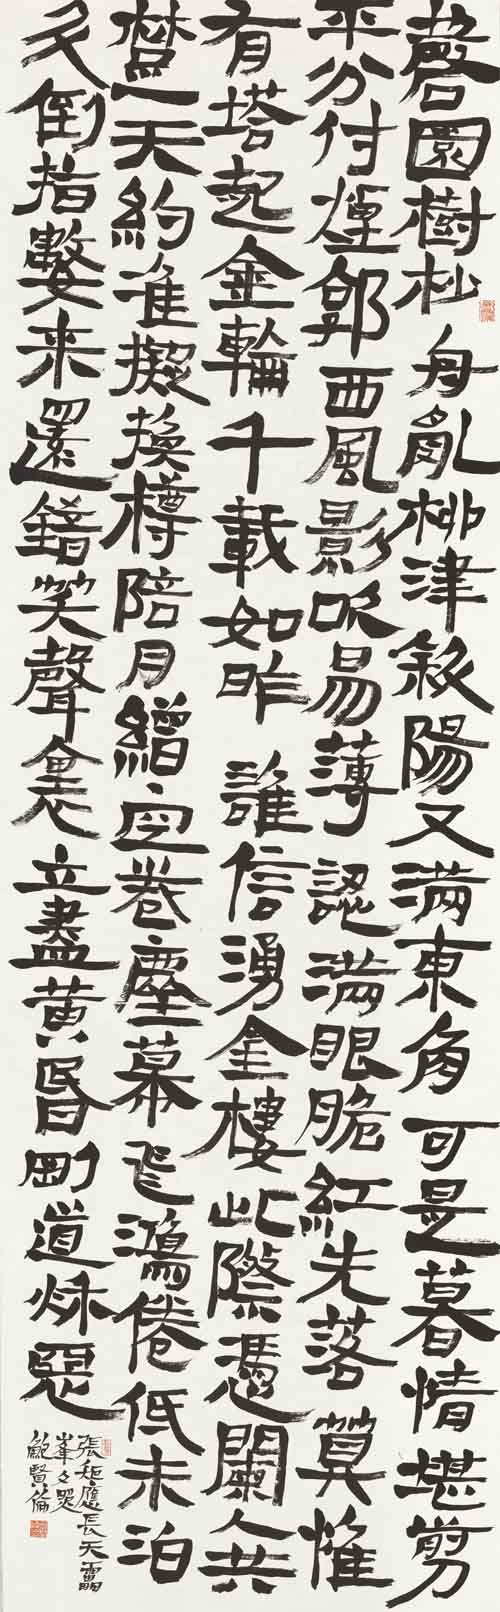 磬園樹杪舟亂柳津斜陽又滿東角可是暮情堪剪
平分付煙郭西風影吹易薄認滿眼脆紅先落算惟
有塔起金輪千載如昨誰信湧金樓此際憑闌人共
楚天約准擬換樽陪月繒空卷塵幕飛鴻倦低未泊
久倒指數来還錯笑聲裏立盡黃昏剛道秋惡
張矩應長天雷
峯夕照
鮑賢倫